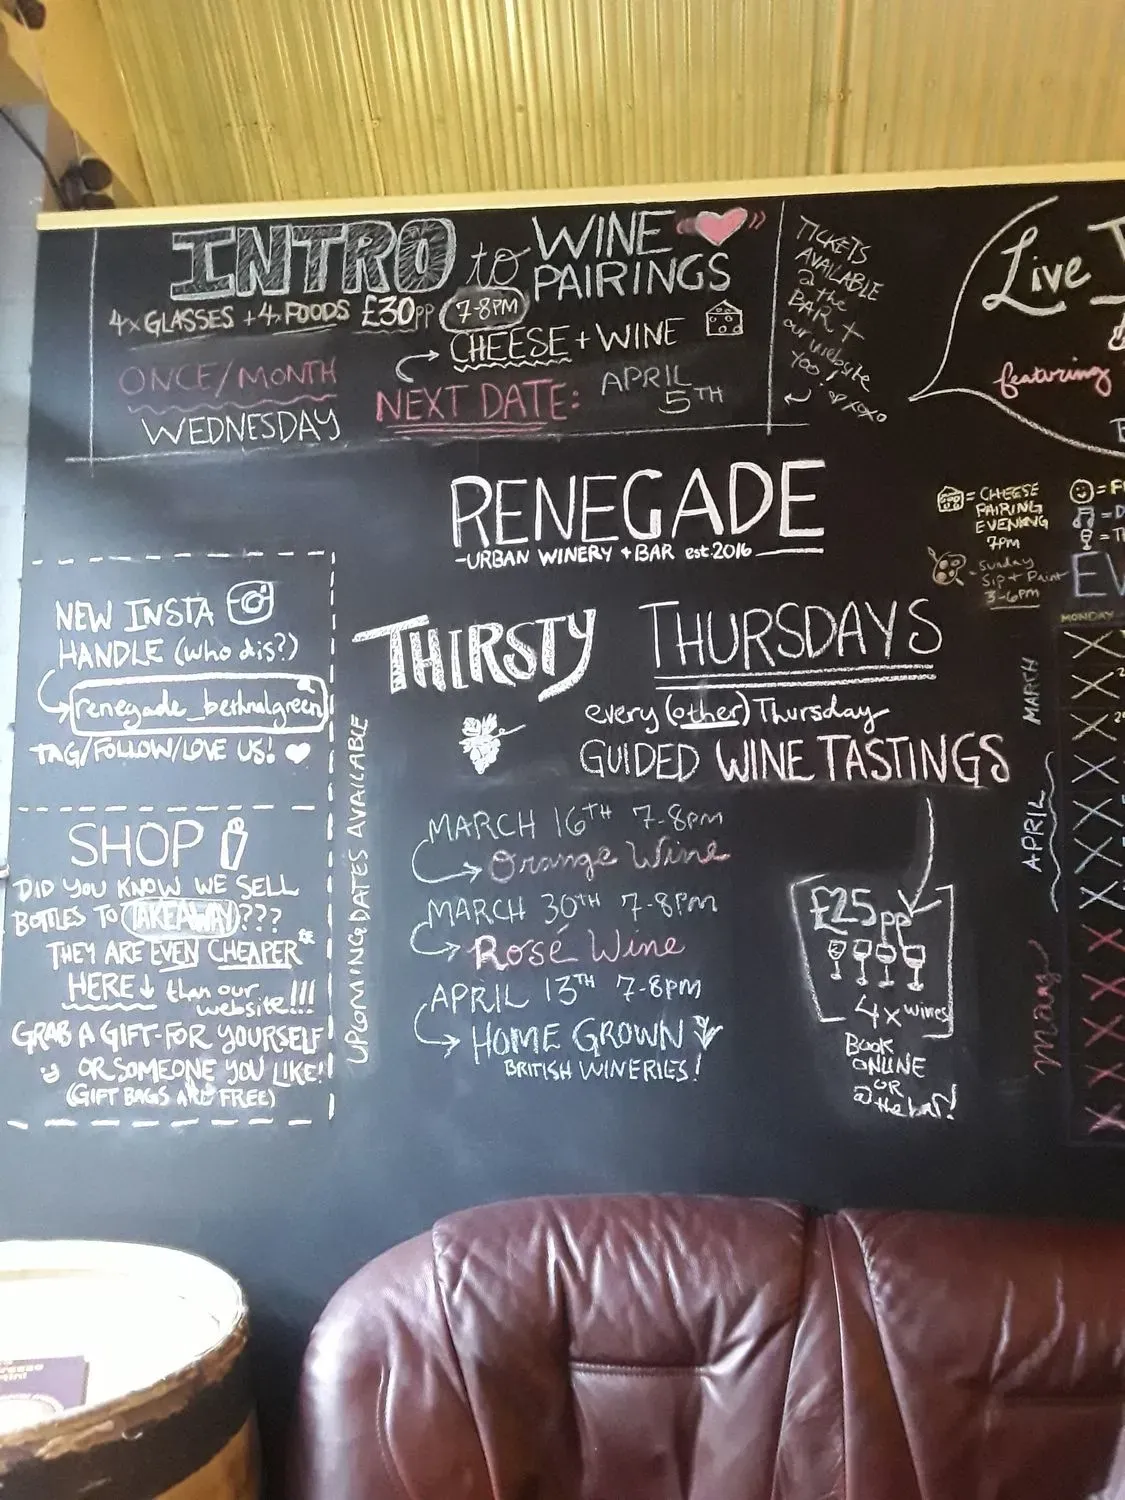 INTRO to WINE
PAIRINGS
4x GLASSES + 4x FOODS £30pp 7-8PM
CHEESE + WINE
ONCE/MONTH
WEDNESDAY
NEXT DATE: APRIL
5TH
TICKETS
AVAILABLE
@ the
BAR +
our website
too!
xoxo
Live
featuring
RENEGADE
-URBAN WINERY + BAR est. 2016
= CHEESE
PAIRING
EVENING
7PM
- Sunday
Sip + Paint
3-6PM
MONDAY
NEW INSTA
HANDLE (who dis?)
renegade_bethnalgreen
TAG/FOLLOW/LOVE US!
SHOP
DID YOU KNOW WE SELL
BOTTLES TO TAKEAWAY???
THEY ARE EVEN CHEAPER
HERE than our
website!!!
GRAB A GIFT-FOR YOURSELF
OR SOMEONE YOU LIKE!
(GIFT BAGS ARE FREE)
THIRSTY THURSDAYS
every (other) Thursday
GUIDED WINE TASTINGS
UPCOMING DATES AVAILABLE
MARCH 16TH 7-8PM
Orange Wine
MARCH 30TH 7-8PM
Rosé Wine
APRIL 13TH 7-8PM
HOME GROWN
BRITISH WINERIES!
£25pp
4x wines
BOOK
ONLINE
OR
@ the bar!
MARCH
APRIL
May